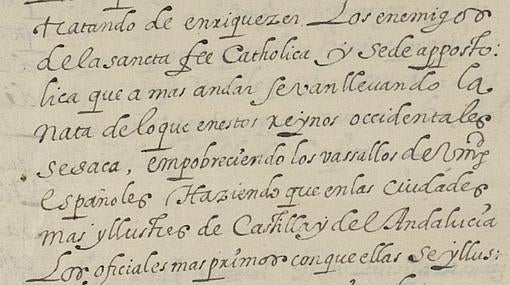 tratando de enriquezer Los enemigos
de la sancta fee Catholica y sede apposto:
lica que a mas andar se van llevando la
nata de lo que en estos reynos occidentales
se saca, empobreciendo los vassallos de V mgd
españoles Haziendo que en las ciudades
mas yllustres de Castilla y del Andalucia
Los oficiales mas primos con que ellas se yllus: